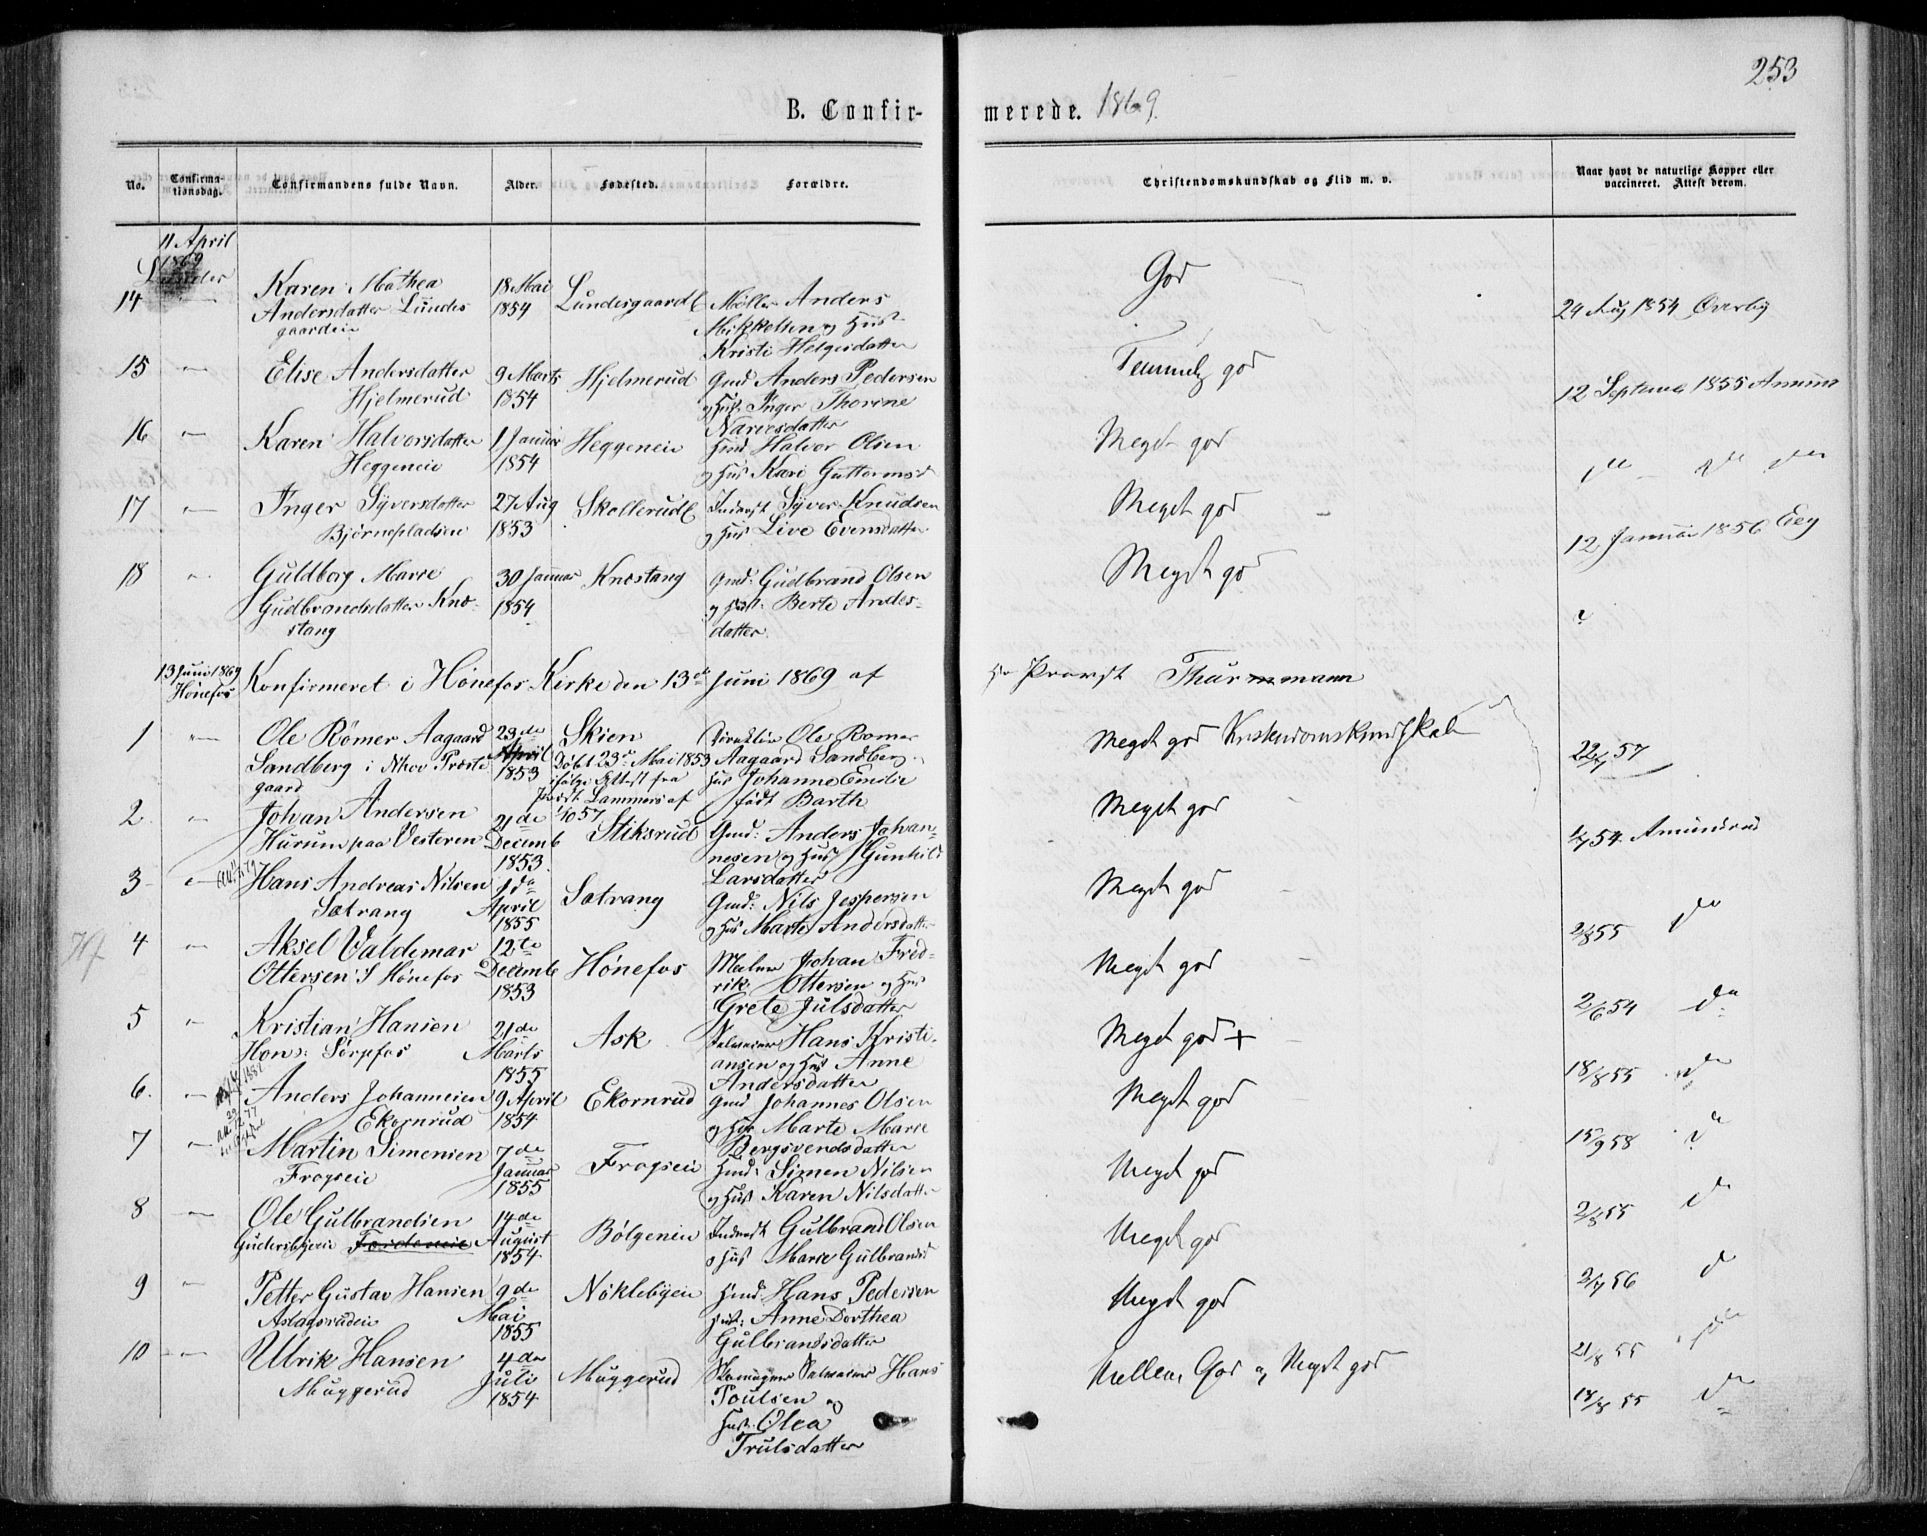 253
B. Confirmerede. 1869.
No. Confirmationsdag. Confirmandens fulde Navn. Alder. Fødested. Forældre. Christendomskundskab og Flid m. v. Naar havt de naturlige Kopper eller vaccineret. Attest derom.
11 April
1869
14 Karen Mathea 18 Mai Lundesgaard Møller Anders God
Andersdatter Lundes 1854 Mikkelsen og Hust 29 Aug 1854 Øverby
gaardeie Kristi Helgesdatter
15 " Elise Andersdatter 9 Marts Hjelmerud Gmd Anders Pedersen Temmelig god
Hjelmerud 1854 og Hust. Inger Thorine 12 Septemb 1855
Narvesdatter
16 " Karen Halvorsdatter 1 Januar Heggeneie Hmd Halvor Olsen Meget god
Heggeneie 1854 og Hus Kari Guttormsd do
17 " Inger Syversdatter 27 Aug Skollerud Inderst Syver Knudsen Meget god
Bjørnepladsen 1853 og Hus Live Evensdatter 12 Januar 1856 Eeg
18 " Guldborg Marie 30 Januar Knestang Gmd. Gudbrand Olsen Meget god
Gudbrandsdatter Kne- 1854 og Hust. Berte Anders-
stang datter.
13 Juni 1869
Hønefos Konfirmeret i Hønefos Kirke den 13de Juni 1869 af Hr Provst Thurmann
1 " Ole Rømer Aagaard 23de Skien Ole Rømer Meget god Kristendomskundskab
Sandberg i Nhov Præste April Døbt 23de Mai 1853 Aagaard Sandberg 22/7 57
gaard 1853 ifølge Attest fra Hus Johanne Emilie
Lammers af født Barth
2. " Johan Andersen 21de Stiksrud Gmd: Anders Johan- Meget god
Hurum paa Vesteren Decemb nesen og Hust Gunhild 54 Amundrud
1853. Larsdatter
3 " Hans Andreas Nilsen 1de Sætrang Gmd: Nils Jespersen Meget god
Sætrang April og Hus Marte Andersdatter 2/8 55 do
1855
4 " Aksel Valdemar 12te Hønefos Johan Fred- Meget god
Ottersen i Hønefos Decemb rik Ottersen og Hus
1853 Grete Julsdatter 2/6 54 do
5 " Kristian Hansen 21de Ask Hans Kristi- Meget god +
Hons: Sørpfos Marts ansen og Hus Anne
1855 Andersdatter 18/8 55 do
6. " Anders Johannesen 9 April Ekornrud Gmd Johannes Olsen Meget god
Ekornrud 1854 og Hus Marte Marie
Bergsvendsdatter 15/9 58 do
7 " Martin Simensen 7de Frogseie Hmd. Simen Nilsen Meget god
Frogseie Januar og Hust Karen Nilsdatter
1855 2/8 55 do
8 " Ole Gulbrandsen 14de Bølgeneie Inderst Gulbrand Olsen Meget god
August og Hust Marie Gulbrandsd
1854. 2/7 56 do
9 " Petter Gustav Hansen 9de Nøklebyeie Hmd. Hans Pedersen Meget god
Aslagsrudeie Mai Hust: Anne Dorthea
1855 Gulbrandsdatter 21/8 55 do
10 " Ulrik Hansen 4de Muggerud Hans Mellem God og Meget god
Muggerud Juli Poulsen og
1854 Hust. Olea 18/8 55 do
Trulsdatter